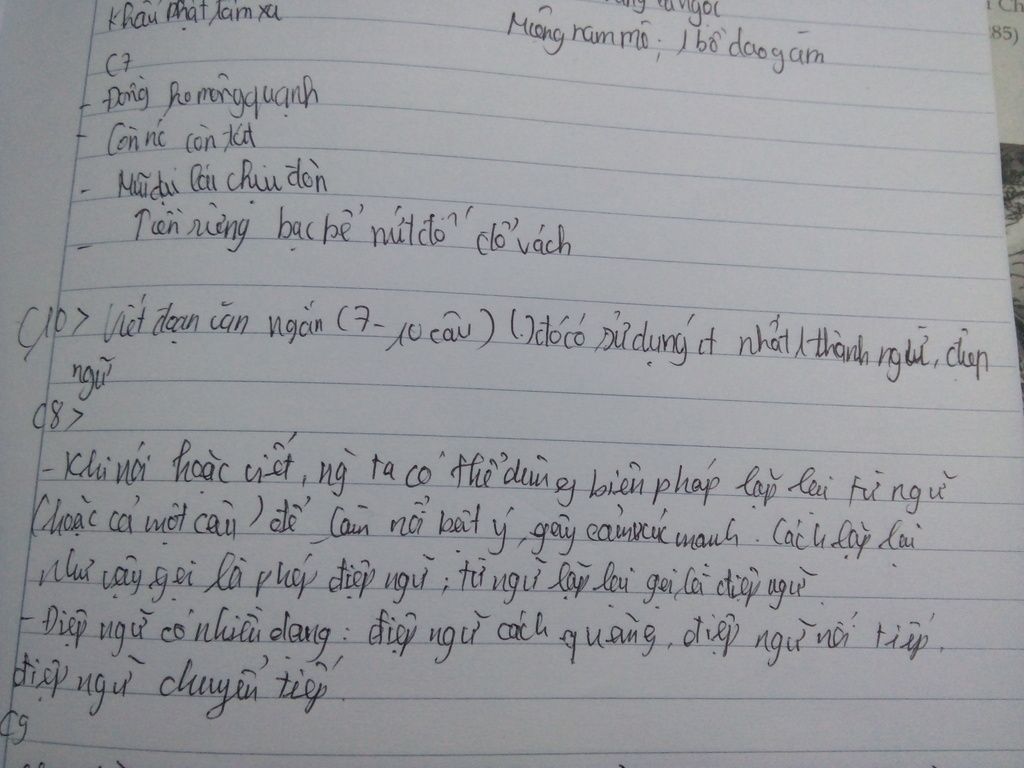 khẩu phật, tâm xà
Miệng nam mô, 1 bồ dao găm
C7
- Đồng ko mông quạnh
- Còn nc còn tát
- Mũi dại lái chịu đòn
- Tiền rừng bạc bể nứt đố đổ vách
C10> Viết đoạn văn ngắn (7-10 câu) (.) đó có sử dụng ít nhất 1 thành ngữ, điệp
ngữ
C8>
- Khi nói hoặc viết, ng ta có thể dùng biện pháp lặp lại từ ngữ
(hoặc cả một câu) để làm nổi bật ý, gây cảm xúc mạnh. Cách lặp lại
như vậy gọi là phép điệp ngữ; từ ngữ lặp lại gọi là điệp ngữ
- Điệp ngữ có nhiều dạng: điệp ngữ cách quãng, điệp ngữ nối tiếp,
điệp ngữ chuyển tiếp.
C9
85)